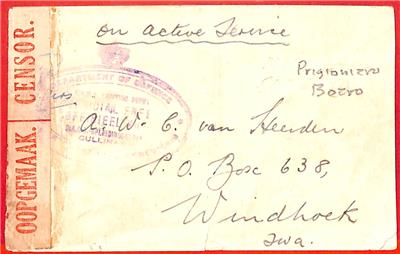 on active Service
Prigioniero
Boero
DEPARTMENT OF DEFENCE
OFFICIAL FREE
CULLINAN
A. W. C. van Heerden
P.O. Box 638,
Windhoek
Swa.
OOPGEMAAK. CENSOR.